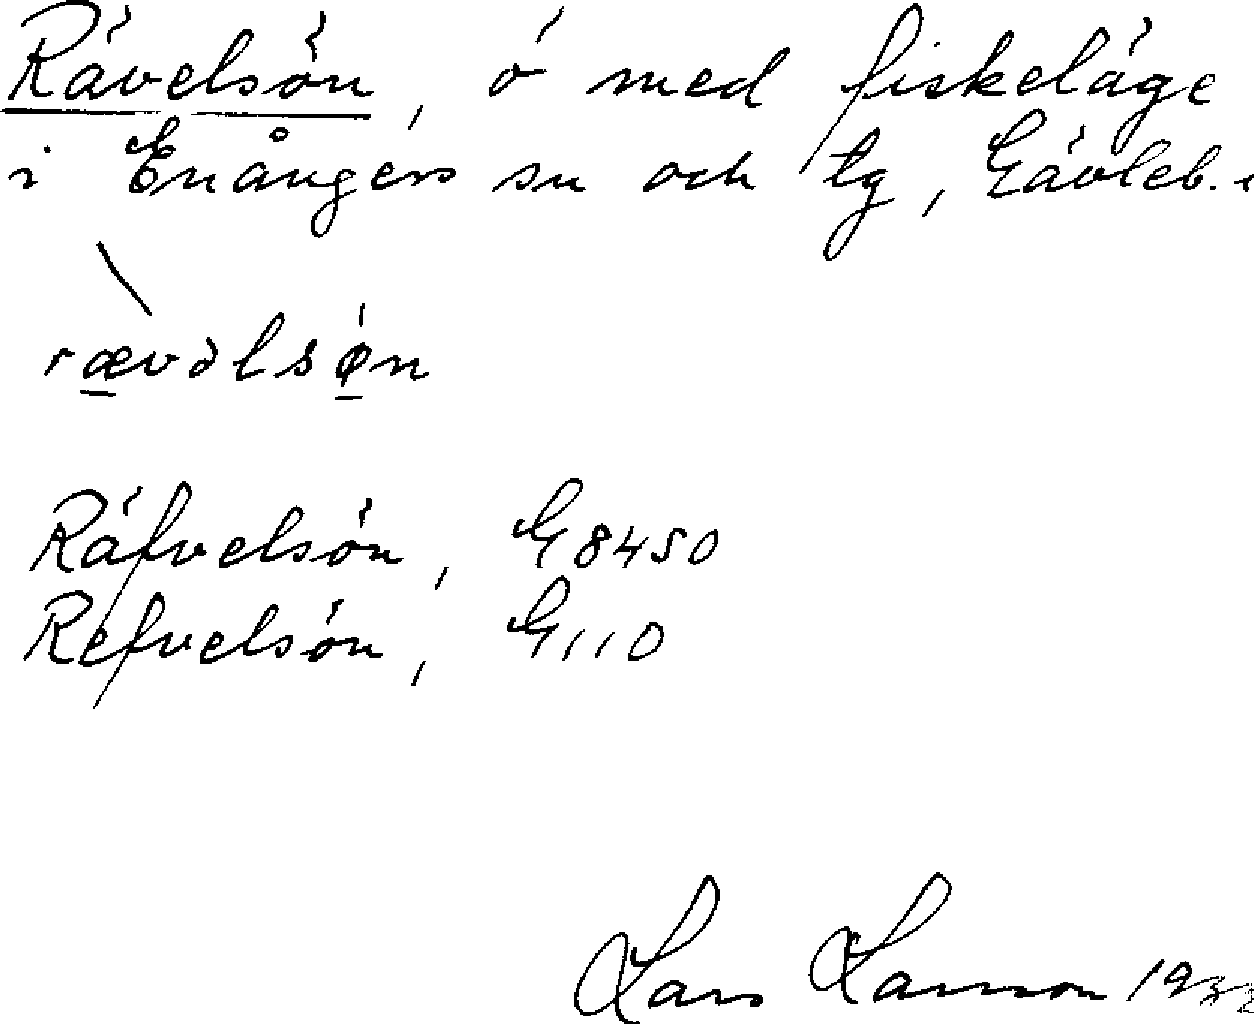 Rävelsön, ö med fiskeläge
i Enångers sn och tg, Gävleb.
rævəlsøn
Räfvelsön, G 8450
Refvelsön, G 110
Lars Larsson